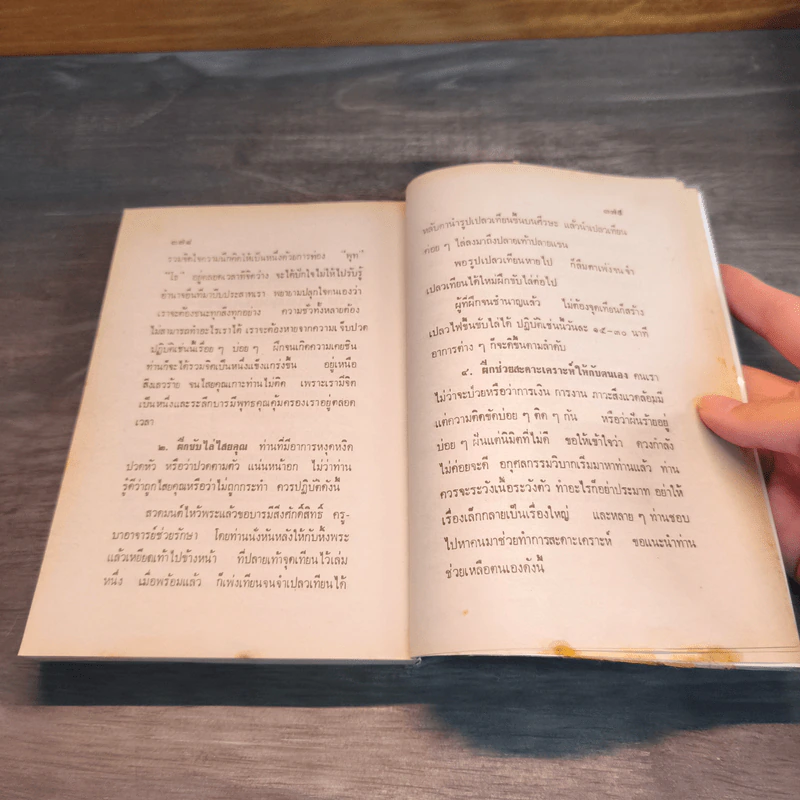 ๓๗๔
รวมจิตใจความนึกคิดให้เป็นหนึ่งด้วยการท่อง "พุท"
"โธ" อยู่ตลอดเวลาที่จิตว่าง จะได้ปักใจไม่ให้ไปรับรู้
อำนาจอื่นที่มาบีบประสาทเรา พยายามปลุกใจตนเองว่า
เราจะต้องชนะทุกสิ่งทุกอย่าง ความชั่วทั้งหลายต้อง
ไม่สามารถทำอะไรเราได้ เราจะต้องหายจากความเจ็บปวด
ปฏิบัติเช่นนี้เรื่อย ๆ บ่อย ๆ ฝึกจนเกิดความเคยชิน
ท่านก็จะได้รวมจิตเป็นหนึ่งแข็งแกร่งขึ้น อยู่เหนือ
สิ่งเลวร้าย จนไสยคุณเกาะท่านไม่ติด เพราะเรามีจิต
เป็นหนึ่งและระลึกบารมีพุทธคุณคุ้มครองเราอยู่ตลอด
เวลา
๒. ฝึกขับไล่ไสยคุณ ท่านที่มีอาการหงุดหงิด
ปวดหัว หรือว่าปวดตามตัว แน่นหน้าอก ไม่ว่าท่าน
รู้ดีว่าถูกไสยคุณหรือว่าไม่ถูกกระทำ ควรปฏิบัติดังนี้
สวดมนต์ไหว้พระแล้วขอบารมีสิ่งศักดิ์สิทธิ์ ครู-
บาอาจารย์ช่วยรักษา โดยท่านนั่งหันหลังให้กับหิ้งพระ
แล้วเหยียดเท้าไปข้างหน้า ที่ปลายเท้าจุดเทียนไว้เล่ม
หนึ่ง เมื่อพร้อมแล้ว ก็เพ่งเทียนจนจำเปลวเทียนได้
๓๗๕
หลับตานำรูปเปลวเทียนขึ้นบนศีรษะ แล้วนำเปลวเทียน
ค่อย ๆ ไล่ลงมาถึงปลายเท้าปลายแขน
พอรูปเปลวเทียนหายไป ก็ลืมตาเพ่งจนจำ
เปลวเทียนได้ใหม่ฝึกขับไล่ต่อไป
ผู้ที่ฝึกจนชำนาญแล้ว ไม่ต้องจุดเทียนก็สร้าง
เปลวไฟขึ้นขับไล่ได้ ปฏิบัติเช่นนี้วันละ ๑๕-๓๐ นาที
อาการต่าง ๆ ก็จะดีขึ้นตามลำดับ
๔. ฝึกช่วยสะเดาะเคราะห์ให้กับตนเอง คนเรา
ไม่ว่าจะป่วยหรือว่าการเงิน การงาน ภาวะสิ่งแวดล้อมมี
แต่ความติดขัดบ่อย ๆ ติด ๆ กัน หรือว่าฝันร้ายอยู่
บ่อย ๆ ฝันแต่นิมิตที่ไม่ดี ขอให้เข้าใจว่า ดวงกำลัง
ไม่ค่อยจะดี อกุศลกรรมวิบากเริ่มมาหาท่านแล้ว ท่าน
ควรจะระวังเนื้อระวังตัว ทำอะไรก็อย่าประมาท อย่าให้
เรื่องเล็กกลายเป็นเรื่องใหญ่ และหลาย ๆ ท่านชอบ
ไปหาคนมาช่วยทำการสะเดาะเคราะห์ ขอแนะนำท่าน
ช่วยเหลือตนเองดังนี้